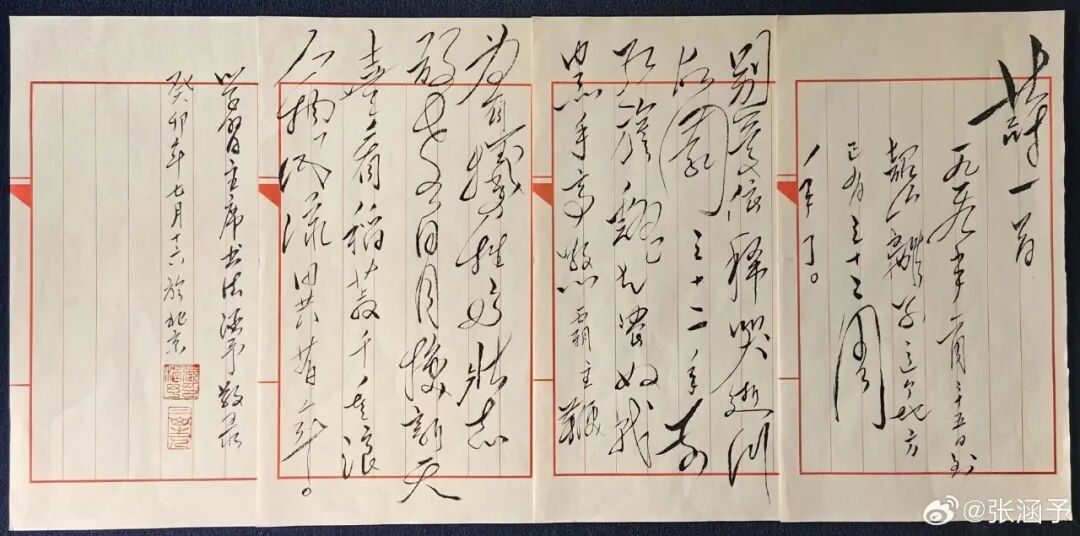 詩一首
一九五九年六月二十五日到
韶山離别这个地方
已有三十二周
年了。
别夢依稀哭逝川
故園三十二年前
红旗飘起农奴戟
黑手高懸霸主鞭
为有犧牲多壮志
敢教日月换新天
喜看稻菽千重浪
人物风流昔年。
学習主席书法涵予敬录
癸卯年七月十六於北京
@张涵予